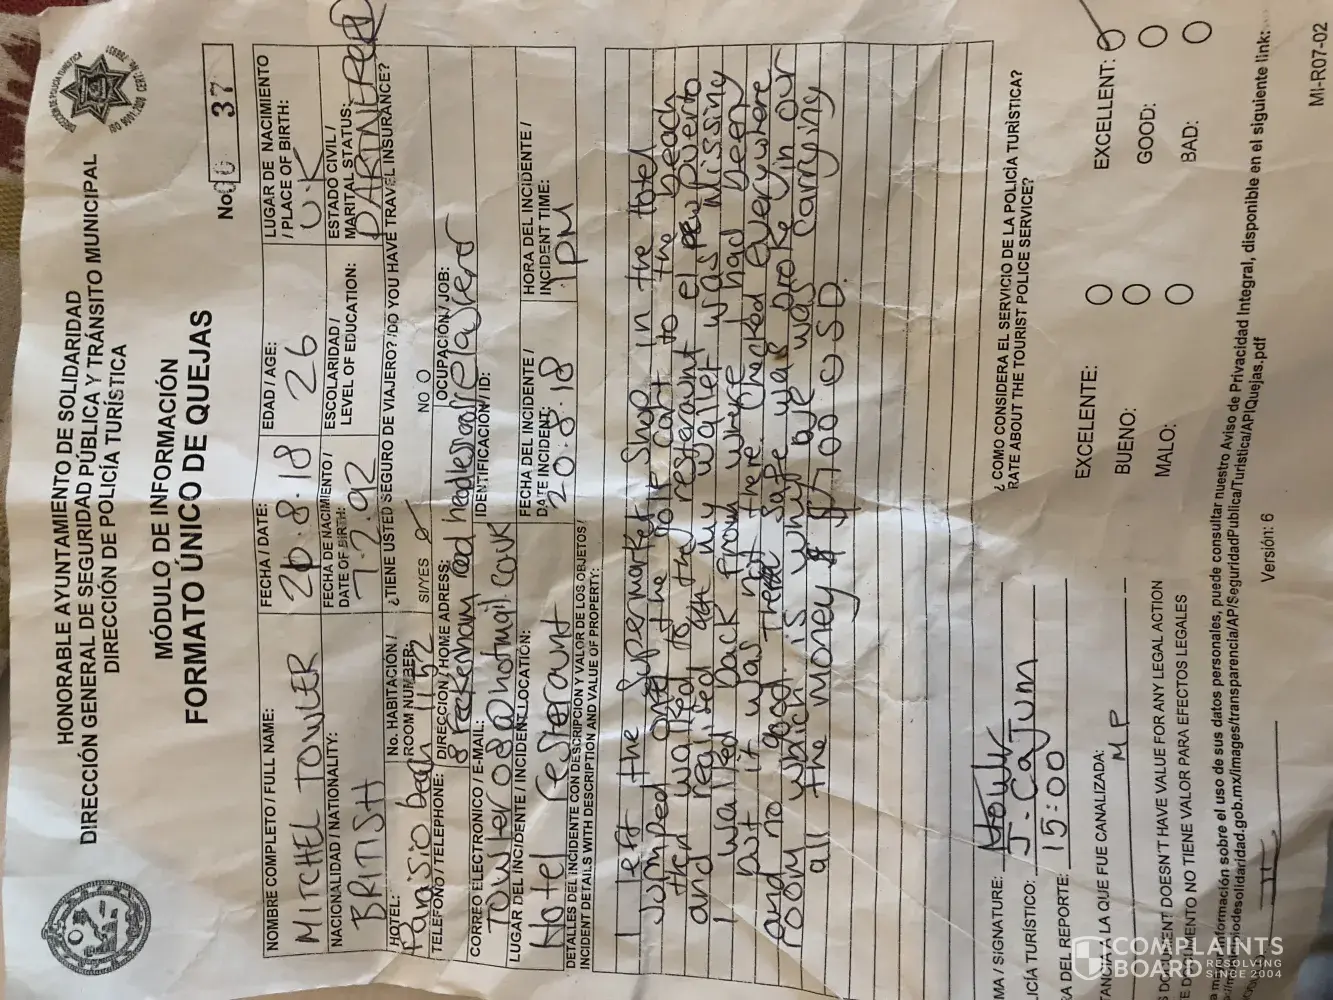 HONORABLE AYUNTAMIENTO DE SOLIDARIDAD
DIRECCIÓN GENERAL DE SEGURIDAD PÚBLICA Y TRÁNSITO MUNICIPAL
DIRECCIÓN DE POLICÍA TURÍSTICA
MÓDULO DE INFORMACIÓN
FORMATO ÚNICO DE QUEJAS
No. 37
NOMBRE COMPLETO / FULL NAME:
MITCHEL TOWLER
FECHA / DATE:
26.8.18
EDAD / AGE:
26
LUGAR DE NACIMIENTO / PLACE OF BIRTH:
U.K
NACIONALIDAD / NATIONALITY:
BRITISH
FECHA DE NACIMIENTO / DATE OF BIRTH:
7.2.92
ESCOLARIDAD / LEVEL OF EDUCATION:
ESTADO CIVIL / MARITAL STATUS:
PARTNERED
HOTEL:
beach
No. HABITACIÓN / ROOM NUMBER:
1152
¿TIENE USTED SEGURO DE VIAJERO? /DO YOU HAVE TRAVEL INSURANCE?
SI/YES NO O
TELÉFONO / TELEPHONE:
DIRECCIÓN / HOME ADDRESS:
8 Beckenham road
OCUPACIÓN / JOB:
CORREO ELECTRONICO / E-MAIL:
hotmail.co.uk
IDENTIFICACIÓN / ID:
LUGAR DEL INCIDENTE / INCIDENT LOCATION:
Hotel resteraunt
FECHA DEL INCIDENTE / DATE INCIDENT:
20.8.18
HORA DEL INCIDENTE / INCIDENT TIME:
1PM
DETALLES DEL INCIDENTE CON DESCRIPCIÓN Y VALOR DE LOS OBJETOS /
INCIDENT DETAILS WITH DESCRIPTION AND VALUE OF PROPERTY:
I left the Supermarket Shop in the hotel
Jumped onto the golf cart to the beach
then walked to the resteraunt el puerto
and realised my wallet was Missing
I walked back from where I had been
but it was not there. Checked everywhere
and no good. The safe was broke in our
room which is why ave was carrying
all the money $ 700 USD.
MA / SIGNATURE:
CÍA TURÍSTICO: J. Cajum
A DEL REPORTE: 15:00
TANCIA A LA QUE FUE CANALIZADA: MP
¿ COMO CONSIDERA EL SERVICIO DE LA POLICÍA TURÍSTICA?
RATE ABOUT THE TOURIST POLICE SERVICE?
EXCELENTE: EXCELLENT:
BUENO: GOOD:
MALO: BAD:
DOCUMENT DOESN'T HAVE VALUE FOR ANY LEGAL ACTION
DOCUMENTO NO TIENE VALOR PARA EFECTOS LEGALES
información sobre el uso de sus datos personales, puede consultar nuestro Aviso de Privacidad Integral, disponible en el siguiente link:
odesolidaridad.gob.mx/images/transparencia/AP/SeguridadPublica/Turistica/APIQuejas.pdf
Versión: 6
MI-R07-02
COMPLAINTS
BOARD RESOLVING
SINCE 2004